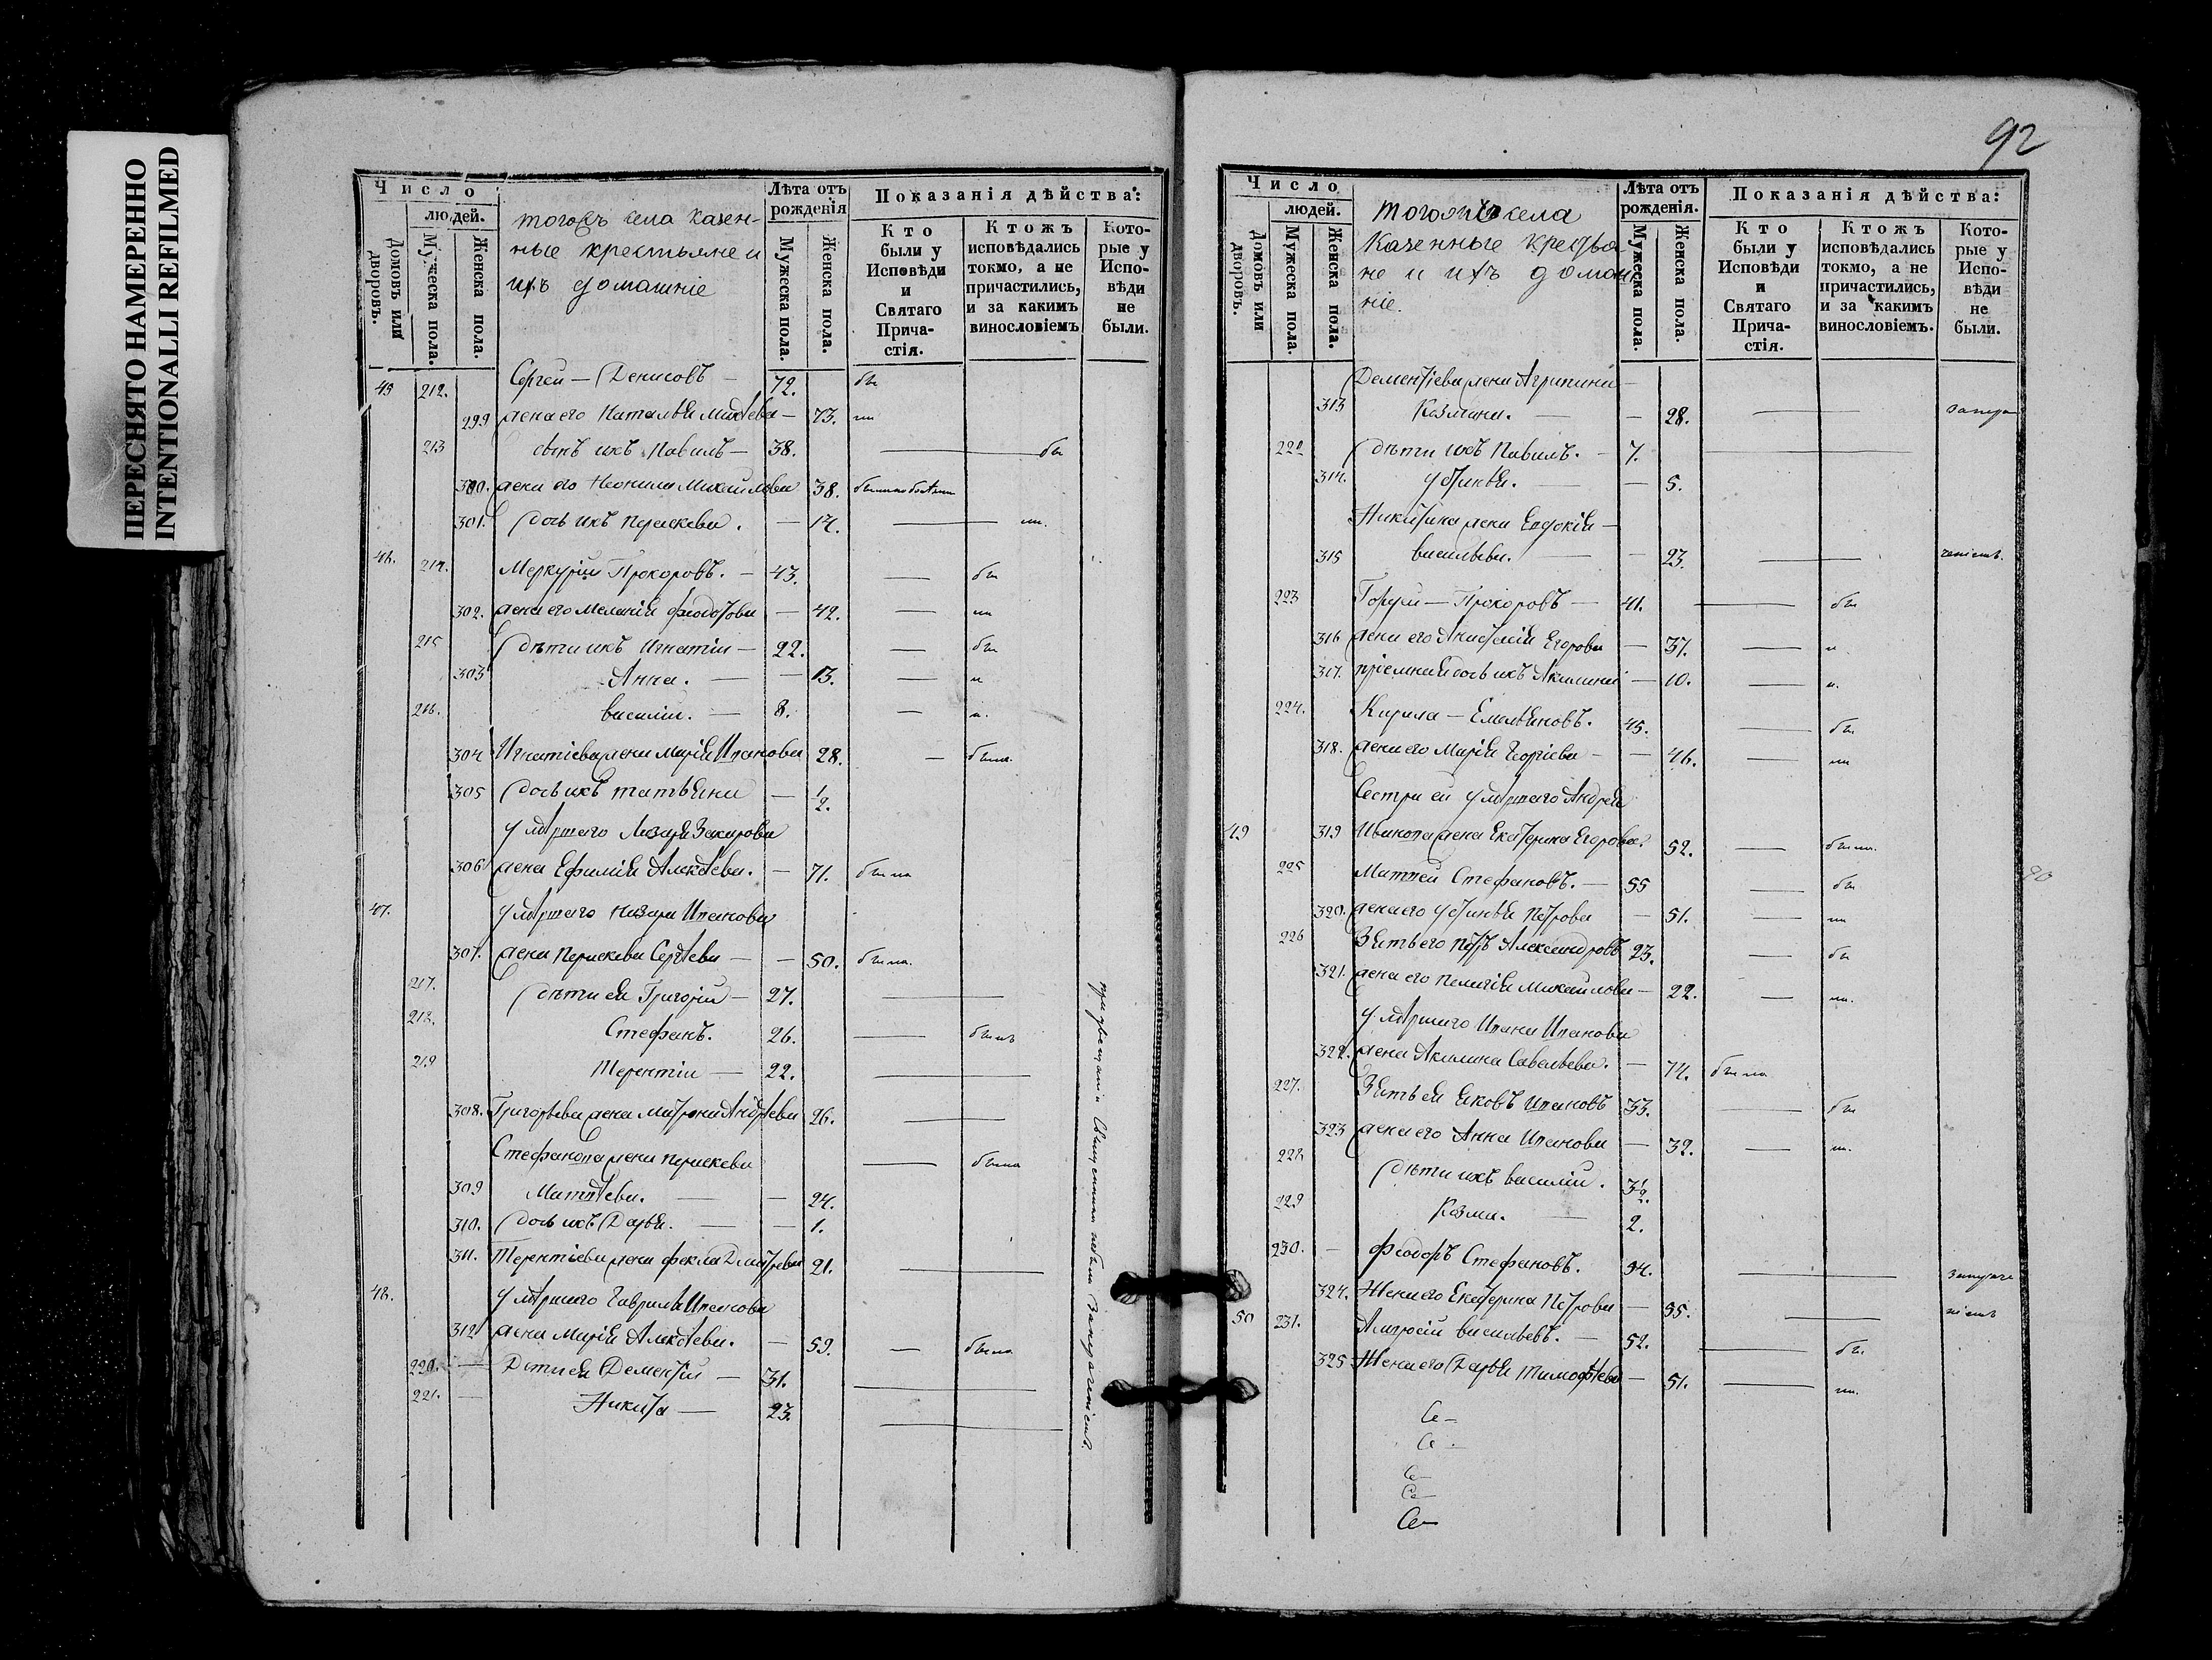 ПЕРЕСНЯТО НАМЕРЕННО
INTENTIONALLI REFILMED
Число
людей.
Домовъ или дворовъ.
Мужеска пола.
Женска пола.
тогожъ села казен-
ные крестьяне и
ихъ домашніе
Лѣта отъ рожденія
Мужеска пола.
Женска пола.
Показанія дѣйства:
Кто были у Исповѣди и Святаго Прича-стія.
Ктожъ исповѣдались токмо, а не причастились, и за какимъ винословіемъ
Кото-рые у Испо-вѣди не были.
45 212. Сергеи — Денисовъ — 72. бы
299 жена его Наталья — 73.
213 сынъ ихъ Павилъ — 38. — бы
300. жена его Неонила Михаилова 38.
301. дочь ихъ Параскева. — 14. —
46. 214. Меркурии Прохоровъ. — 43. — бы
302. жена его Меланія Феодотова — 42. —
215 дѣти ихъ Игнатіи — 22. — бы
303 Анна. — — 13. —
216. василіи. — 8. —
304 Игнатіева жена Марія Иванова 28. — была.
305 дочь ихъ татьяна — 1/2.
умершаго Лазаря Захарова
306 жена Ефимія Алексѣева. — 71. была
47. умершаго Назара Иванова
307. жена Параскева Сергѣева — — 50. была.
217. дѣти ея Григорій — 27. —
218. Стефанъ. 26. — былъ
219 Терентіи — 22. —
308. Григорьева жена Матрона Андрѣева 26. —
Стефанова жена Параскева — была
309 Матѳѣева. — — 24.
310. дочь ихъ Дарья. — — 1.
311. Терентіева жена Фекла Дмитрева 21. —
48. умершаго Гаврила Иванова
312 жена Марія Алексѣева. — 59. — была
220. — Дѣти ея Дементіи — 31. —
221. — Никита — 23. —
92
Число
людей.
Домовъ или дворовъ.
Мужеска пола.
Женска пола.
тогожъ села
Казенные крестья
не и ихъ домаш
ніе.
Лѣта отъ рожденія.
Мужеска пола.
Женска пола.
Показанія дѣйства:
Кто были у Исповѣди и Святаго Прича-стія.
Ктожъ исповѣдались токмо, а не причастились, и за какимъ винословіемъ.
Кото-рые у Испо-вѣди не были.
Дементіева жена Агрипина —
313 Козмина. — — 28. —
222 дѣти ихъ Павилъ. — 7. —
314. Устинья. — — 5.
Никитина жена Евдокія —
315 васильева. — — 23. —
223 Гордѣи — Прохоровъ — 41. — бы
316 жена его Анастасія Егорова — 37. —
317. пріемная дочь ихъ Акилина — 10. —
224. Кирила — Емельяновъ. 45. — бы
318. жена его Марія Георгіева — — 46. —
Сестра ея умершаго Андрея
49 319 Иванова жена Екатерина Егорова. 52. — была.
225 Матѳеи Стефановъ. — 55 — бы
320. жена его Устинья Петрова — 51. —
226 Зять его Петръ Александровъ 23. — бы
321. жена его Пелагія Михаилова — 22. —
умершаго Ивана Иванова
322. жена Акилина Савельева. — 74. была
227. Зять ея Яковъ Ивановъ 33. — бы
323 жена его Анна Иванова — 32. —
228 дѣти ихъ василіи. 3 1/2.
229 Козма. — 2.
230. — Феодоръ Стефановъ. 34. —
324. Жена его Екатерина Петрова — 35. —
50 231. Амвросіи васильевъ. — 52. — бы
325 Жена его Дарья Тимофѣева — 51. —